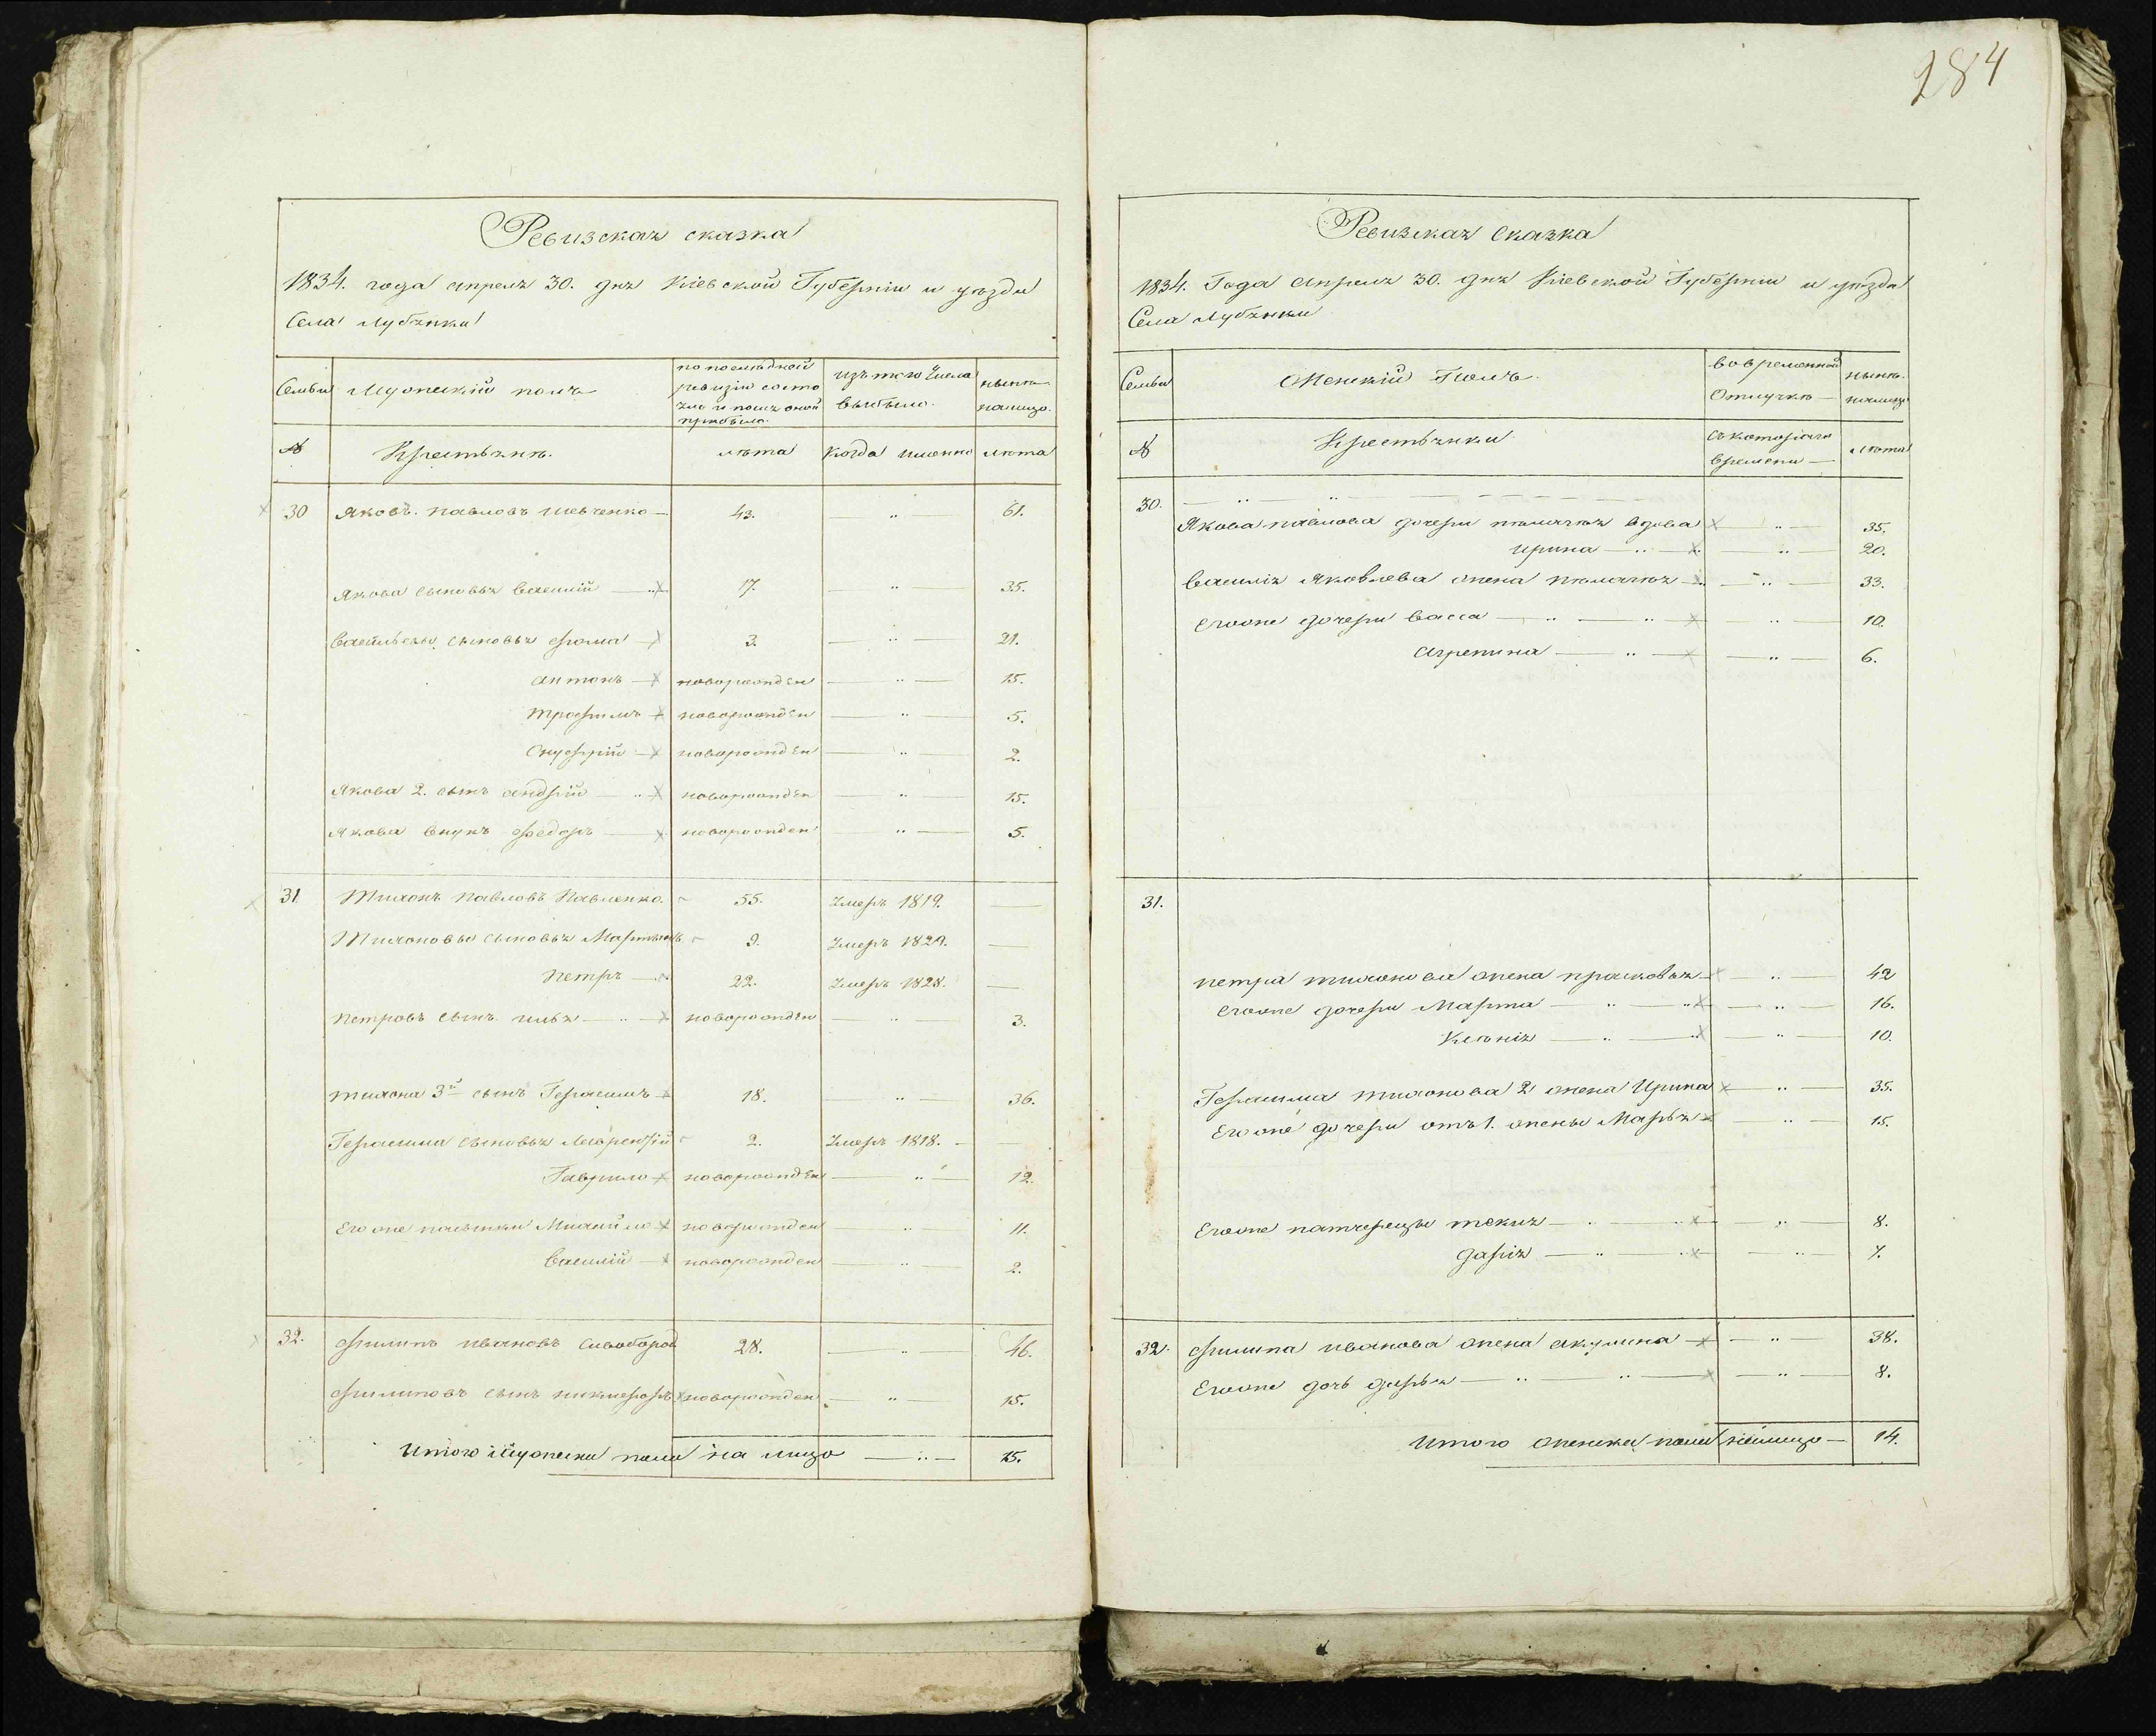 284
Ревизская сказка
1834. года апреля 30. дня Кіевской Губерніи и уезда
Села Лубянки
Семьи Мужеский полъ по последной ревизіи состояло и после оной прибыло. изъ того числа выбыло. ныне на лицо.
№ Крестьяне. лета Когда именно лета
30 Яковъ Павловъ Шевченко — 43. — „ — 61.
Якова сыновья Василій — 17. — „ — 35.
Васильевы сыновья Фома — 3. — „ — 21.
Антонъ — новорожден — „ — 15.
Трофимъ — новорожден — „ — 5.
Онуфрій — новорожден — „ — 2.
Якова 2. сынъ Андрій — „ новорожден — „ — 15.
Якова внукъ Федоръ — новорожден — „ — 5.
31 Тихонъ Павловъ Павленко. 55. Умеръ 1819. —
Тихоновы сыновья Мартынъ 9. Умеръ 1829. —
Петръ — 22. Умеръ 1828. —
Петровъ сынъ Илья — „ новорожден — „ — 3.
Тихона 3й сынъ Герасимъ 18. — „ — 36.
Герасима сыновья Лаврентій 2. Умеръ 1818. —
Гаврило новорожден — „ — 12.
Его же пасынки Михайло новорожден — „ — 11.
Василій — новорожден — „ — 2.
32. Филипъ Ивановъ Сивобород 28. — „ — 46.
Филиповъ сынъ Никифоръ новорожден — „ — 15.
Итого мужеска пола на лицо — „ — 15.
Ревизская Сказка
1834. Года Апреля 30. дня Кіевской Губерніи и уезда
Села Лубянки
Семьи Женскій Полъ. Во временной Отлучке — ныне. на лицо
№ Крестьянки. Съ котораго времени — Лета
30. — „ — „ —
Якова Павлова дочери Пелагея вдова — „ — 35.
Ирина — „ — „ — 20.
Василія Яковлева жена Пелагея — „ — 33.
Его же дочери Васса — „ — „ — „ — 10.
Агрепина — „ — „ — 6.
31.
Петра Тихонова жена Прасковья — „ — 42
Его же дочери Марта — „ — „ — „ — 16.
Ксенія — „ — „ — 10.
Герасима Тихонова 2 жена Ирина — „ — 35.
Его же дочери отъ 1. жены Марья — „ — 15.
Его же патчерицы Текля — „ — 8.
Дарія — „ — „ — 7.
32. Филипа Иванова жена Акулина — „ — 38.
Его же дочь Дарья — „ — „ — „ — 8.
Итого женска пола на лицо — 14.